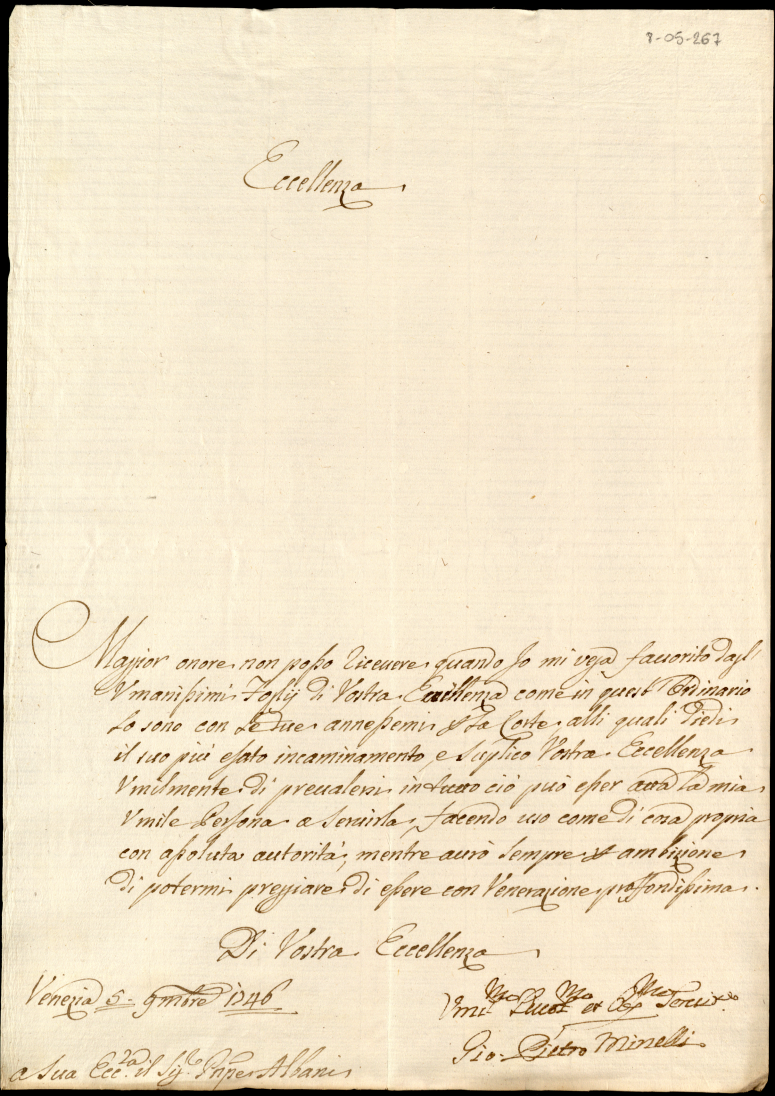 7-05-267
Eccellenza
Maggior onore non posso ricevere quando Io mi vegä favorito dagl'
Vmanissimi Foglij di Vostra Eccellenza come in quest'Ordinario
Lo sono con Le due annessemi p La Corte alli quali Diedi
il suo più esato incaminamento, e Suplico Vostra Eccellenza
Vmilmente di prevalersi in tutto ciò può esser atta La mia
Vmile Persona a Servirla, facendo uso come di cosa propria
con assoluta autorità, mentre avrò sempre p ambizione
di potermi preggiare di essere con Venerazione proffondissima.
Di Vostra Eccellenza
Venezia 5 9mbre 1746
Vmi.mo Devot.mo et Obb.mo Servit.e
Gio. Pietro Minelli
a Sua Ecc.za il Sig.e Pnpe Albani